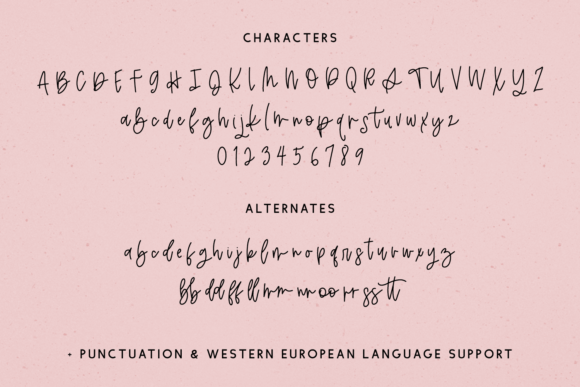 CHARACTERS
A B C D E F G H I J K L M N O P Q R S T U V W X Y Z
a b c d e f g h i j k l m n o p q r s t u v w x y z
0 1 2 3 4 5 6 7 8 9
ALTERNATES
a b c d e f g h i j k l m n o p q r s t u v w x y z
bb dd ff ll mm nn oo rr ss tt
+ PUNCTUATION & WESTERN EUROPEAN LANGUAGE SUPPORT